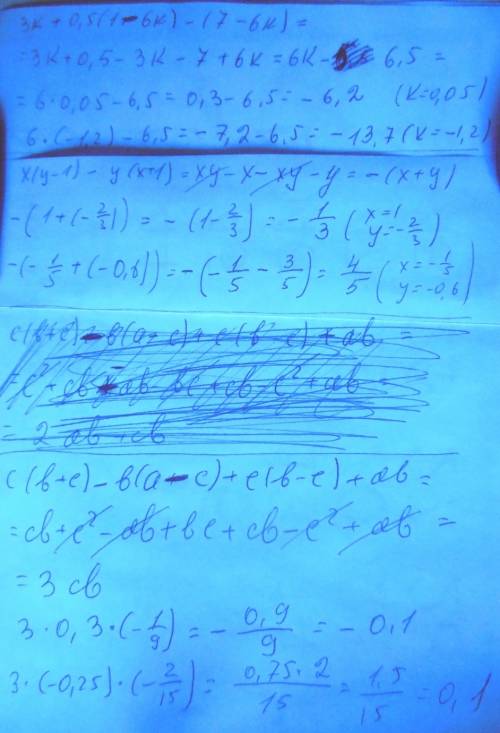 3к + 0,5(1-6к) - (7-6к) =
= 3к + 0,5 - 3к - 7 + 6к = 6к - 6,5 =
= 6·0,05 - 6,5 = 0,3 - 6,5 = - 6,2 (к=0,05)
6·(-1,2) - 6,5 = - 7,2 - 6,5 = - 13,7 (к=-1,2)
x(y-1) - y(x+1) = xy - x - xy - y = -(x+y)
-(1+(-2/3)) = -(1-2/3) = - 1/3 (x=1 y=-2/3)
-(-1/5+(-0,6)) = -(-1/5 - 3/5) = 4/5 (x=-1/5 y=-0,6)
c(b+c) - b(a-c) + c(b-c) + ab =
= 2ab + cb
c(b+c) - b(a-c) + c(b-c) + ab =
= cb + c² - ab + bc + cb - c² + ab =
= 3cb
3·0,3·(-1/9) = - 0,9/9 = - 0,1
3·(-0,25)·(-2/15) = 0,75·2/15 = 1,5/15 = 0,1